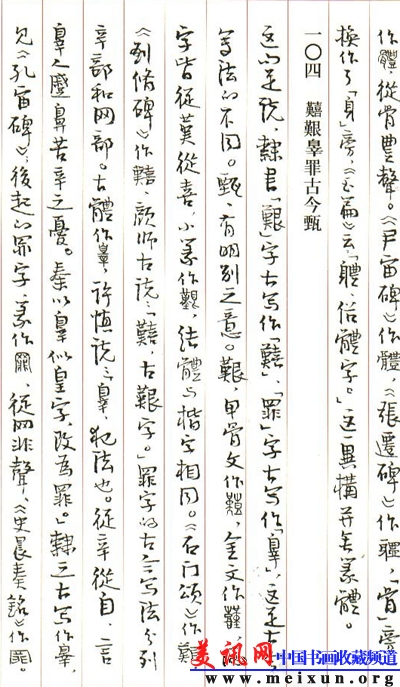 作體，從骨豊聲。《尹宙碑》作體，《張遷碑》作軆，「骨」旁
換作了「身」旁，《玉篇》云：「軆，俗體字。」这一異構並無篆體。
一〇四 囏艱辠罪古今甄
这是說，隸書「艱」字古写作「囏」，「罪」字古写作「辠」，这是古今
写法的不同。甄，有明别之意。艱，甲骨文作囏，金文作
字皆從堇從喜，小篆作艱，结體与楷字相同。《石门頌》作艱
《劉脩碑》作囏，顏師古說：「囏，古艱字。」罪字的古今写法分列
辛部和网部。古體作辠，許慎說：「辠，犯法也。從辛從自，言
辠人蹙鼻苦辛之憂。秦以辠似皇字，改為罪。」隸之古写作辠，
見《孔宙碑》，後起的罪字，篆作罪，從网非聲，《史晨奏銘》作罪。
美讯网 中国书画收藏频道
www.meixun.org